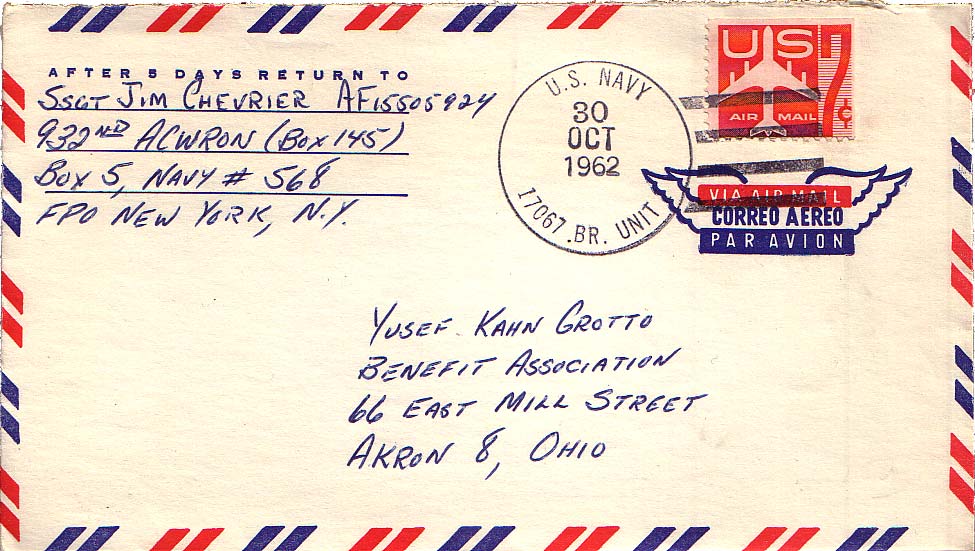 AFTER 5 DAYS RETURN TO
SSGT JIM CHEVRIER AF15505924
932ND ACWRON (BOX 145)
BOX 5, NAVY # 568
FPO NEW YORK, N.Y.
U.S. NAVY
30
OCT
1962
17067.BR. UNIT
US
AIR MAIL
7¢
VIA AIR MAIL
CORREO AEREO
PAR AVION
YUSEF KAHN GROTTO
BENEFIT ASSOCIATION
66 EAST MILL STREET
AKRON 8, OHIO